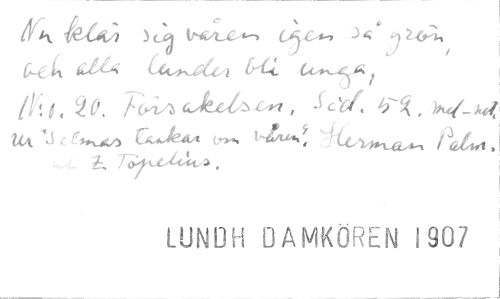 Nu klär sig våren igen så grön,
och alla lunder bli unga,
N:o. 20. Försakelsen. Sid. 52. med not.
ur "Selmas tankar om våren". Herman Palm.
Z. Topelius.
LUNDH DAMKÖREN 1907